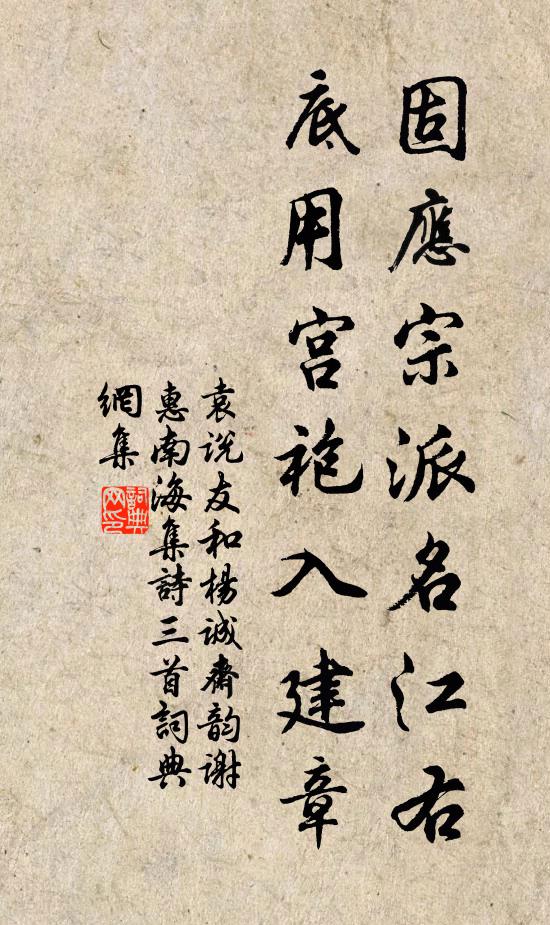 固應宗派名江右
底用宮袍入建章
袁说友和楊誠齋韵谢
惠南海集詩三首詞典
網集
詞典網印